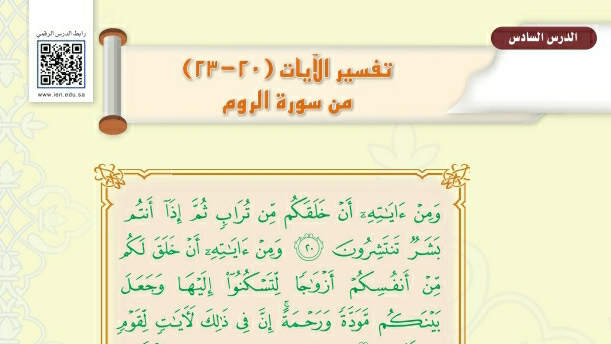 الدرس السادس
رابط الدرس الرقمي
www.ien.edu.sa
تفسير الآيات (٢٠-٢٣)
من سورة الروم
وَمِنْ ءَايَٰتِهِۦٓ أَنْ خَلَقَكُم مِّن تُرَابٍ ثُمَّ إِذَآ أَنتُم
بَشَرٌ تَنتَشِرُونَ ٢٠ وَمِنْ ءَايَٰتِهِۦٓ أَنْ خَلَقَ لَكُم
مِّنْ أَنفُسِكُمْ أَزْوَٰجًا لِّتَسْكُنُوٓا۟ إِلَيْهَا وَجَعَلَ
بَيْنَكُم مَّوَدَّةً وَرَحْمَةً ۚ إِنَّ فِى ذَٰلِكَ لَءَايَٰتٍ لِّقَوْمٍ